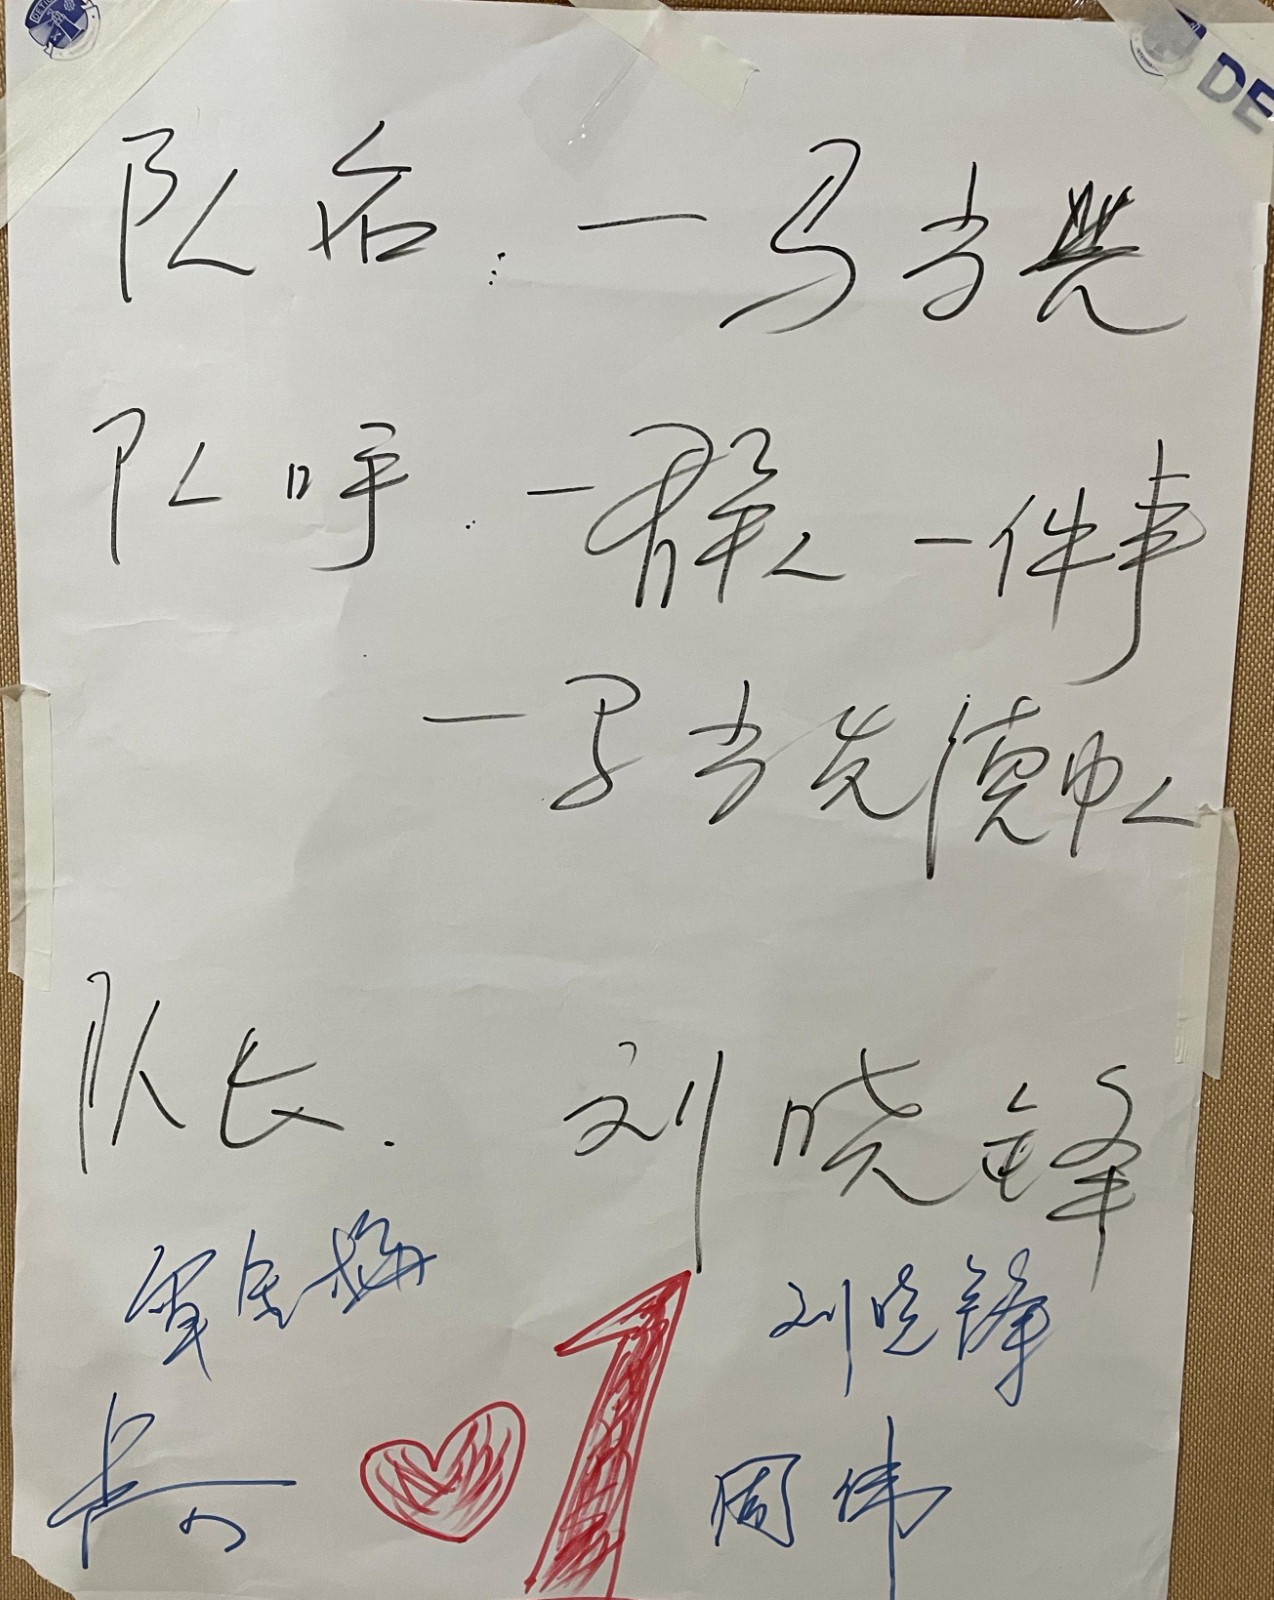 DE
队名：一马当先
队呼：一群人 一件事
一马当先 德中人
队长. 刘晓锋
刘晓锋
周伟
1